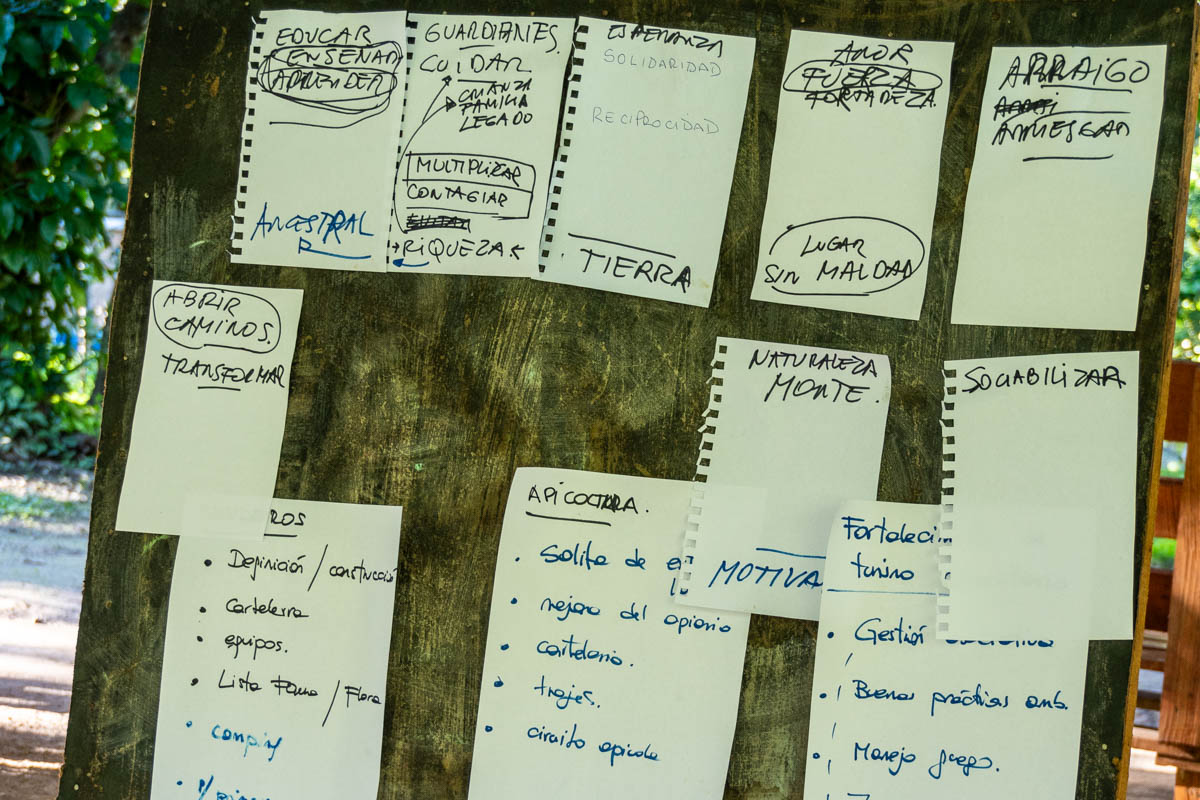 EDUCAR
ENSEÑAR
APRENDER
ANCESTRAL
R
GUARDIANES.
CUIDAR
CRIANZA
FAMILIA
LEGADO
MULTIPLICAR
CONTAGIAR
RIQUEZA
ESPERANZA
SOLIDARIDAD
RECIPROCIDAD
TIERRA
AMOR
FUERZA
FORTALEZA
LUGAR
SIN MALDAD
ARRAIGO
ABRIR
CAMINOS.
TRANSFORMAR
NATURALEZA
MONTE.
MOTIVA
SOCIABILIZAR
ROS
• Definición / construcció
• Carteleria
• equipos.
• Lista Fauna / Flora
• camping
APICULTURA.
• Salita de
• mejora del apiario
• cartelería.
• trajes.
• circuito apicola
Fortaleci
turismo
• Gestión
• Buenas prácticas amb.
• Manejo fuego.